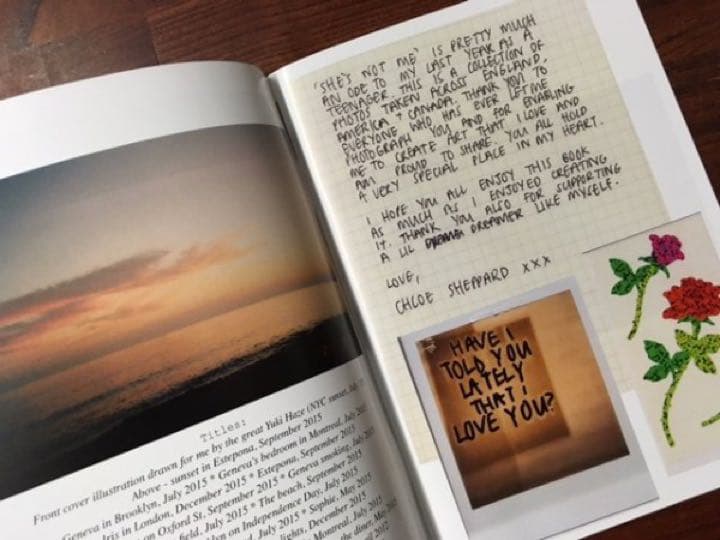 Titles:
Front cover illustration drawn for me by the great Yuki Haze (NYC sunset, July
Above - sunset in Estepona, September 2015
Geneva in Brooklyn, July 2015 * Geneva's bedroom in Montreal, July
Iris in London, December 2015 * Estepona, September 2015
on Oxford St, September 2015 * Geneva smoking, July
field, July 2015 * The beach, September 2015
on Independence Day, July 2015
July 2015 * Sophie, May 2015
lights, December 2015
Montreal, July 2015
the diner, May
'SHE'S NOT ME' IS PRETTY MUCH
AN ODE TO MY LAST YEAR AS A
TEENAGER. THIS IS A COLLECTION OF
PHOTOS TAKEN ACROSS ENGLAND,
AMERICA + CANADA. THANK YOU TO
EVERYONE WHO HAS EVER LET ME
PHOTOGRAPH YOU AND FOR ENABLING
ME TO CREATE ART THAT I LOVE AND
AM PROUD TO SHARE. YOU ALL HOLD
A VERY SPECIAL PLACE IN MY HEART.
I HOPE YOU ALL ENJOY THIS BOOK
AS MUCH AS I ENJOYED CREATING
IT. THANK YOU ALSO FOR SUPPORTING
A LIL DREAMER LIKE MYSELF.
LOVE,
CHLOE SHEPPARD XXX
HAVE I
TOLD YOU
LATELY
THAT I
LOVE YOU?